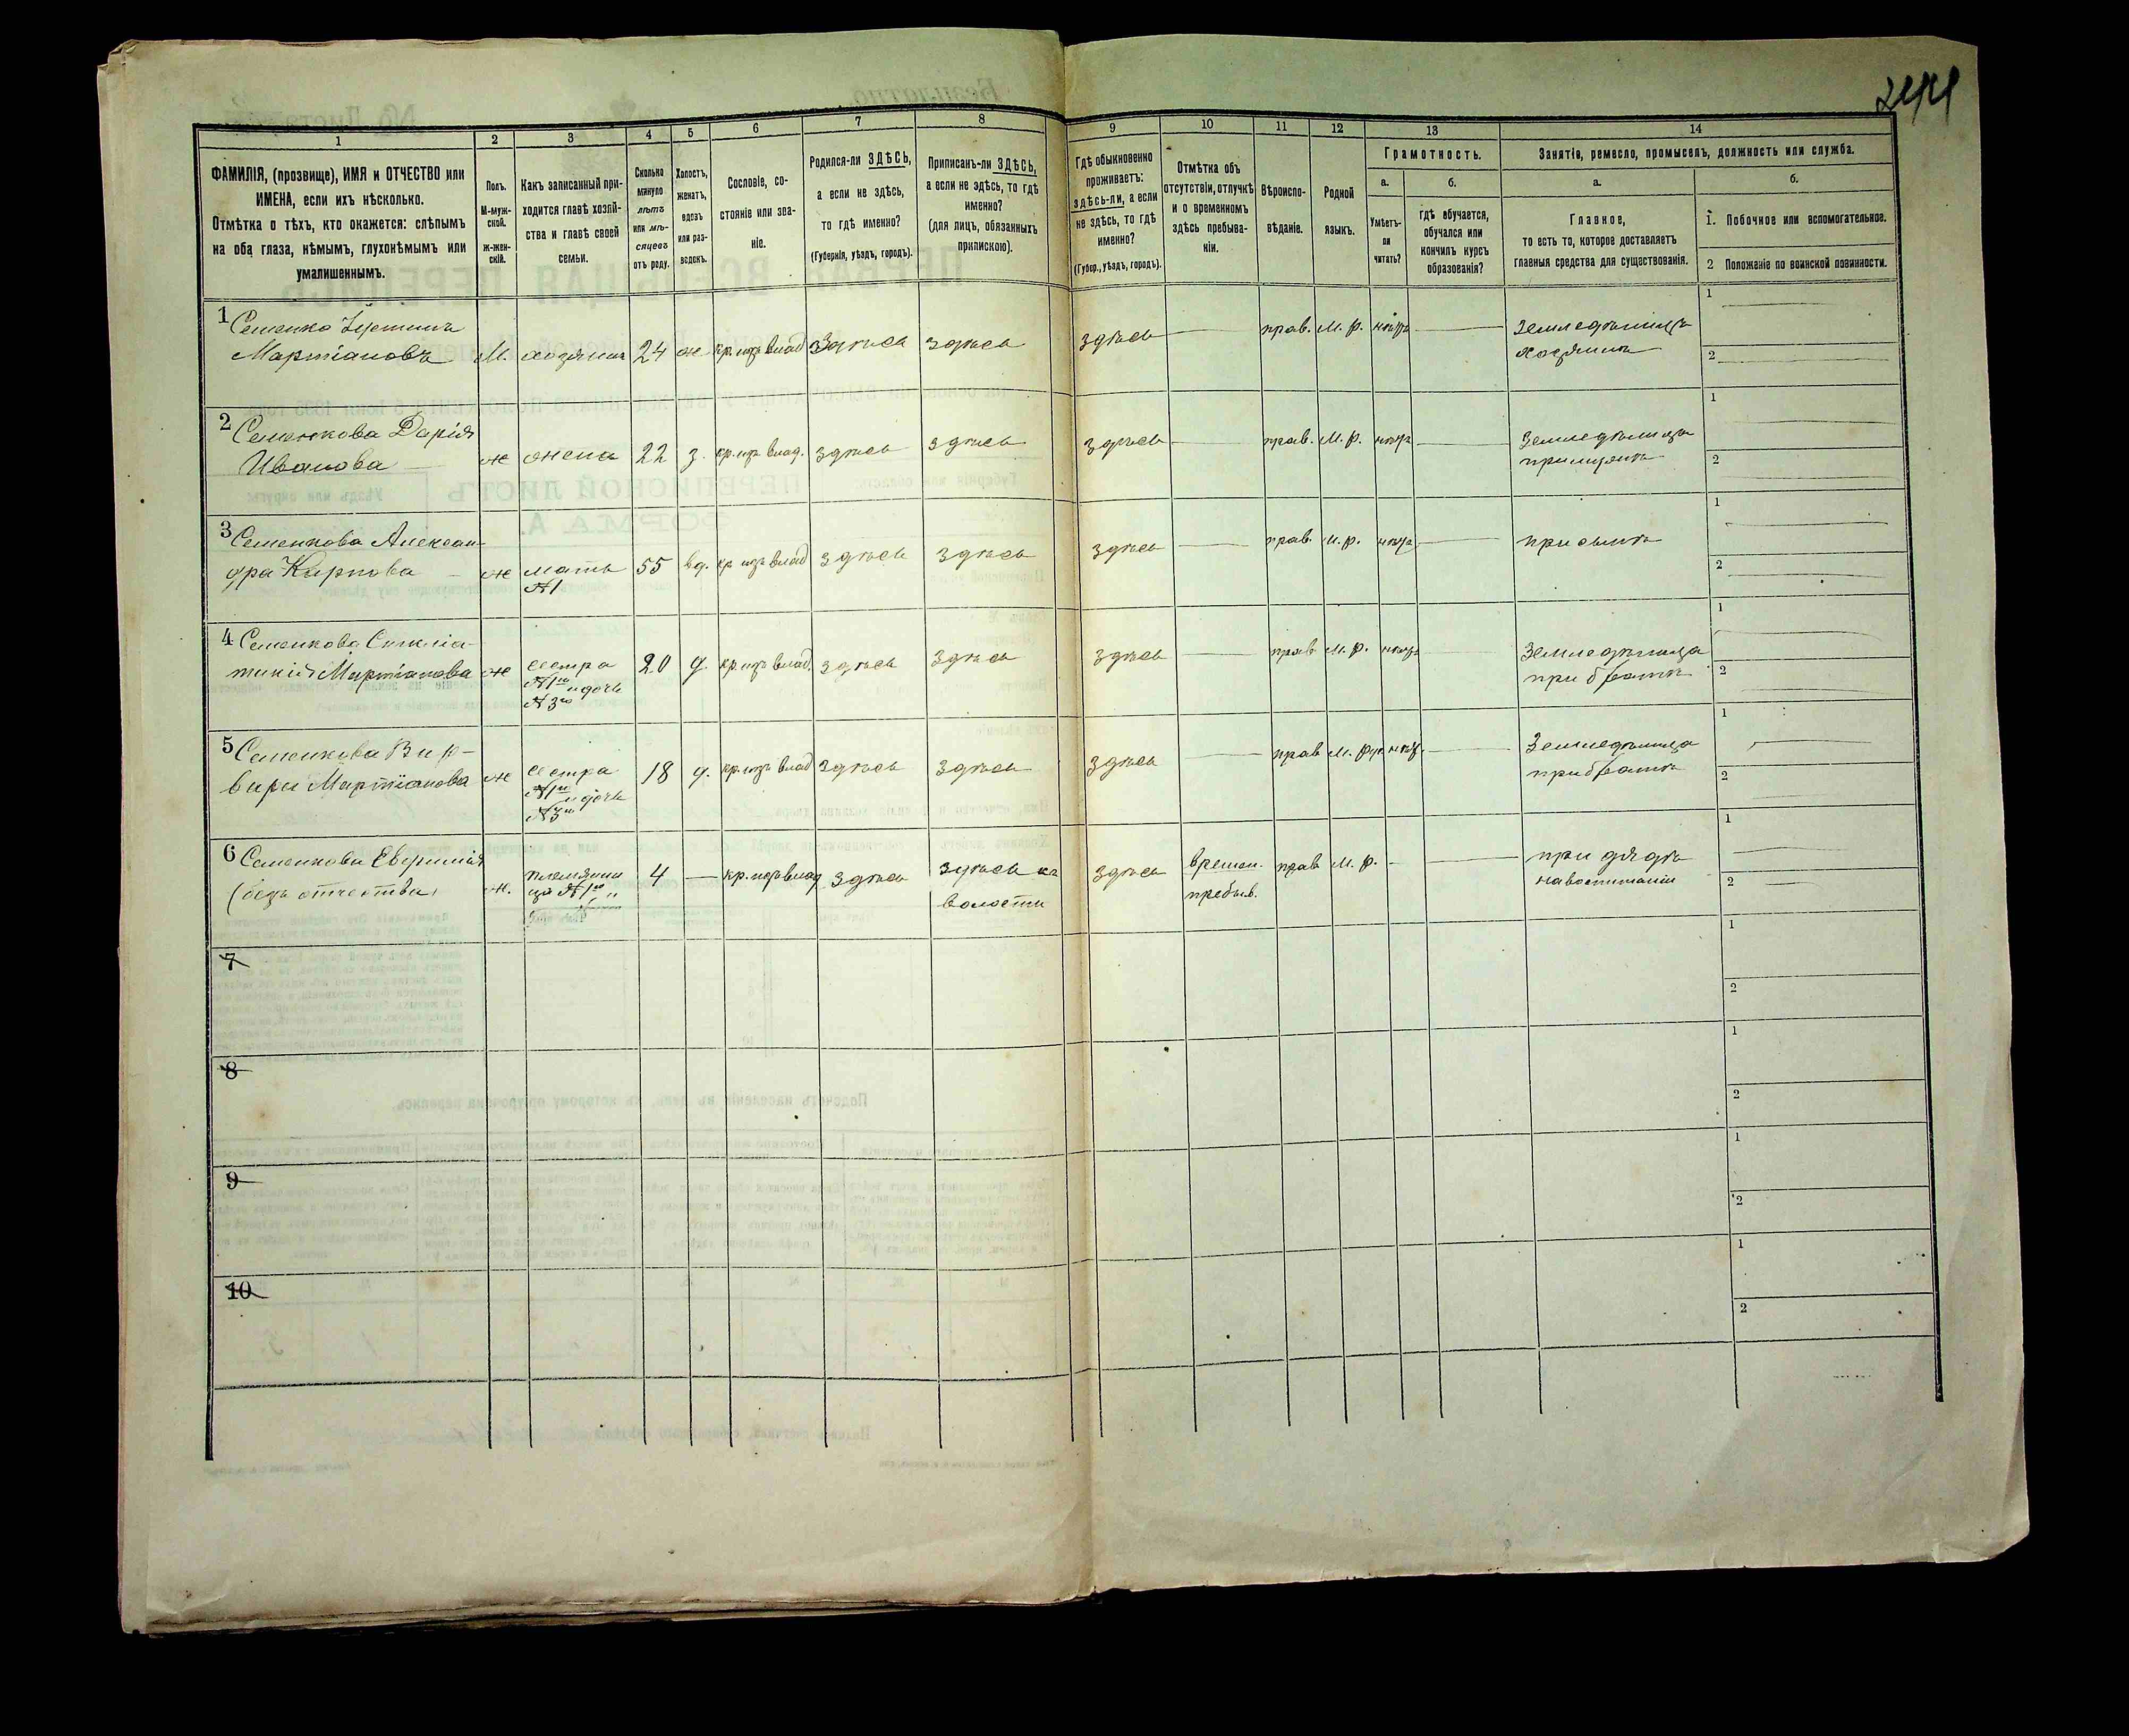 1
2
3
4
5
6
7
8
9
10
11
12
13
14
ФАМИЛІЯ, (прозвище), ИМЯ и ОТЧЕСТВО или
ИМЕНА, если ихъ нѣсколько.
Отмѣтка о тѣхъ, кто окажется: слѣпымъ
на оба глаза, нѣмымъ, глухонѣмымъ или
умалишеннымъ.
Полъ.
М-муж-
ской.
ж-жен-
скій.
Какъ записанный при-
ходится главѣ хозяй-
ства и главѣ своей
семьи.
Сколько
минуло
лѣтъ
или мѣ-
сяцевъ
отъ роду.
Холостъ,
женатъ,
вдовъ
или раз-
веденъ.
Сословіе, со-
стояніе или зва-
ніе.
Родился-ли ЗДѢСЬ,
а если не здѣсь,
то гдѣ именно?
(Губернія, уѣздъ, городъ).
Приписанъ-ли ЗДѢСЬ,
а если не здѣсь, то гдѣ
именно?
(для лицъ, обязанныхъ
припискою).
Гдѣ обыкновенно
проживаетъ:
здѣсь-ли, а если
не здѣсь, то гдѣ
именно?
(Губер., уѣздъ, городъ).
Отмѣтка объ
отсутствіи, отлучкѣ
и о временномъ
здѣсь пребыва-
ніи.
Вѣроиспо-
вѣданіе.
Родной
языкъ.
Грамотность.
а.
Умѣетъ-
ли
читать?
б.
гдѣ обучается,
обучался или
кончилъ курсъ
образованія?
Занятіе, ремесло, промыселъ, должность или служба.
а.
Главное,
то есть то, которое доставляетъ
главныя средства для существованія.
б.
1. Побочное или вспомогательное.
2 Положаніе по воинской повинности.
1 Семенко
Мартіановъ М. хозяинъ 24 ж кр. изъ влад Здѣсь здѣсь здѣсь — прав. М. р. нѣтъ — Земледѣлецъ
хозяинъ
1
2
2 Семенкова Дарія
Иванова ж жена 22 з. кр. изъ влад. здѣсь здѣсь здѣсь — прав. М. р. нѣтъ — Земледѣлица
при мужѣ
1
2
3 Семенкова Алексан-
дра Карпова ж мать 55 вд. кр изъ влад здѣсь здѣсь здѣсь — прав. М. р. нѣтъ — при сынѣ
№1
1
2
4 Семенкова
Мартіанова ж сестра 20 д. кр. изъ влад. здѣсь здѣсь здѣсь — прав М. р. нѣтъ Земледѣлица
№1го и дочь при братѣ
№3го
1
2
5 Семенкова Вар-
вара Мартіанова ж сестра 18 д. кр. изъ влад здѣсь здѣсь здѣсь — прав М. рус нѣт. — Земледѣлица
№1го и дочь при братѣ
№3го
1
2
6 Семенкова Евфимія
(безъ отчества) ж. племянни 4 — кр. изъ влад здѣсь здѣсь къ здѣсь времен. прав М. р. — — при дядѣ
ца №1го волости пребыв. на воспитаніи
1
2
7
1
2
8
1
2
9
1
2
10
1
2